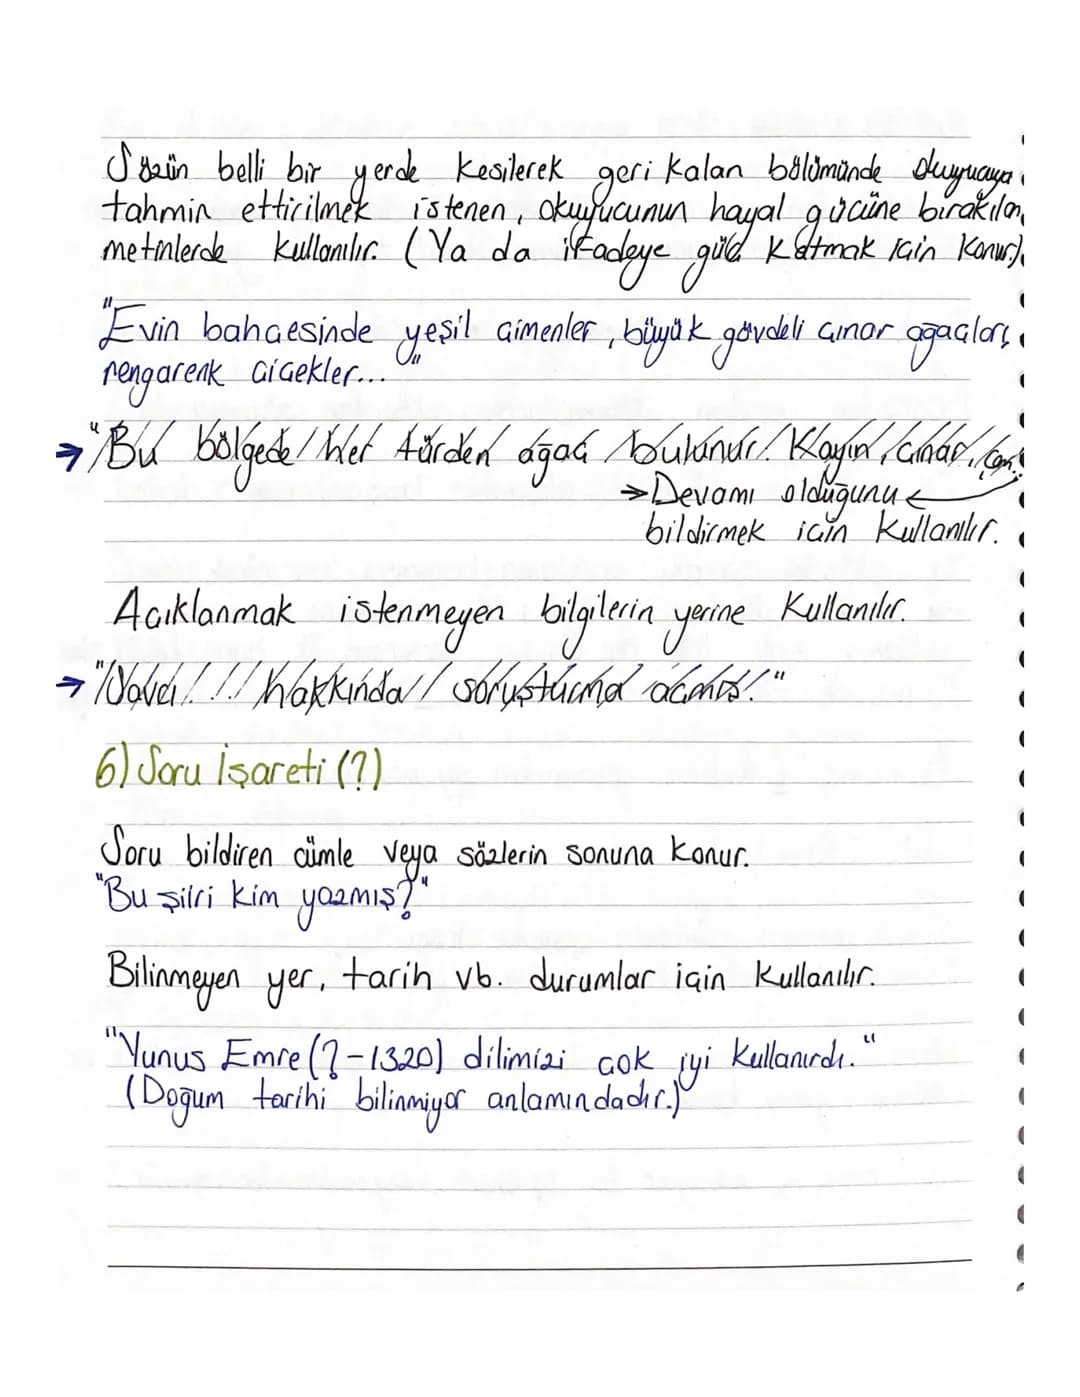 Sözün belli bir yerde kesilerek geri kalan bölümünde okuyucuya
tahmin ettirilmek istenen, okuyucunun hayal gücüne bırakılan
metinlerde kullanılır. (Ya da ifadeye güç katmak için konur).
"Evin bahçesinde yeşil çimenler, büyük gövdeli çınar ağaçları,
rengarenk çiçekler..."
→ "Bu bölgede her türden ağaç bulunur. Kayın, çınar, çam...
→ Devamı olduğunu ←
bildirmek için kullanılır.
Açıklanmak istenmeyen bilgilerin yerine kullanılır.
→ "Savcı ... hakkında soruşturma açmış."
6) Soru İşareti (?)
Soru bildiren cümle veya sözlerin sonuna konur.
"Bu şiiri kim yazmış?"
Bilinmeyen yer, tarih vb. durumlar için kullanılır.
"Yunus Emre (?-1320) dilimizi çok iyi kullanırdı."
(Doğum tarihi bilinmiyor anlamındadır.)